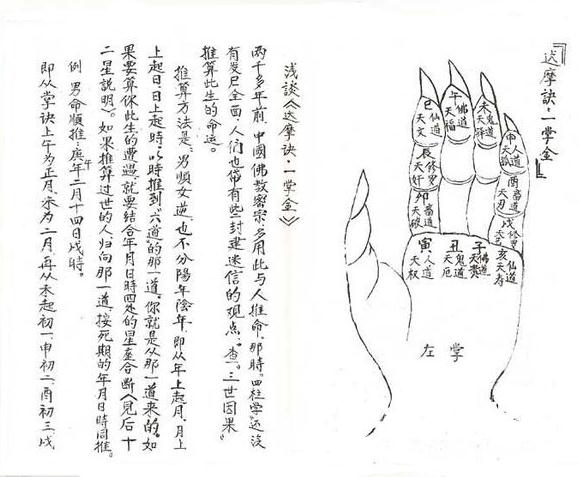 『达摩訣·一掌金』
巳 仙道 天文
午 佛道 天福
未 鬼道 天驿
申 人道 天孤
辰 修罗 天奸
酉 畜道 天刃
卯 畜道 天破
戌 修罗 天艺
寅 人道 天权
丑 鬼道 天厄
子 佛道 天贵
亥 仙道 天寿
左掌
浅谈《达摩诀·一掌金》
两千多年前，中國佛教密宗，多用此与人推命，那時。四柱学"还没
有发尸全面，人们也帶有些封建迷信的观点。查"三世因果"
推算此生的命运。
推算方法是：男順女逆，也不分陽年陰年，即从年上起月，月上
上起日，日上起時，以時推到"六道"的那一道。你就是从那一道来的。如
果要算你此生的遭遇，就要结合年月日時四处的星查合断《見后十
二星説明》。如果推算过世的人归向那一道，接死期的年月日時同推。
例 男命順推：庚午年二月十四日戌時。
即从掌诀上午为正月，未为二月，再从未起初一，申初二，酉初三，戌